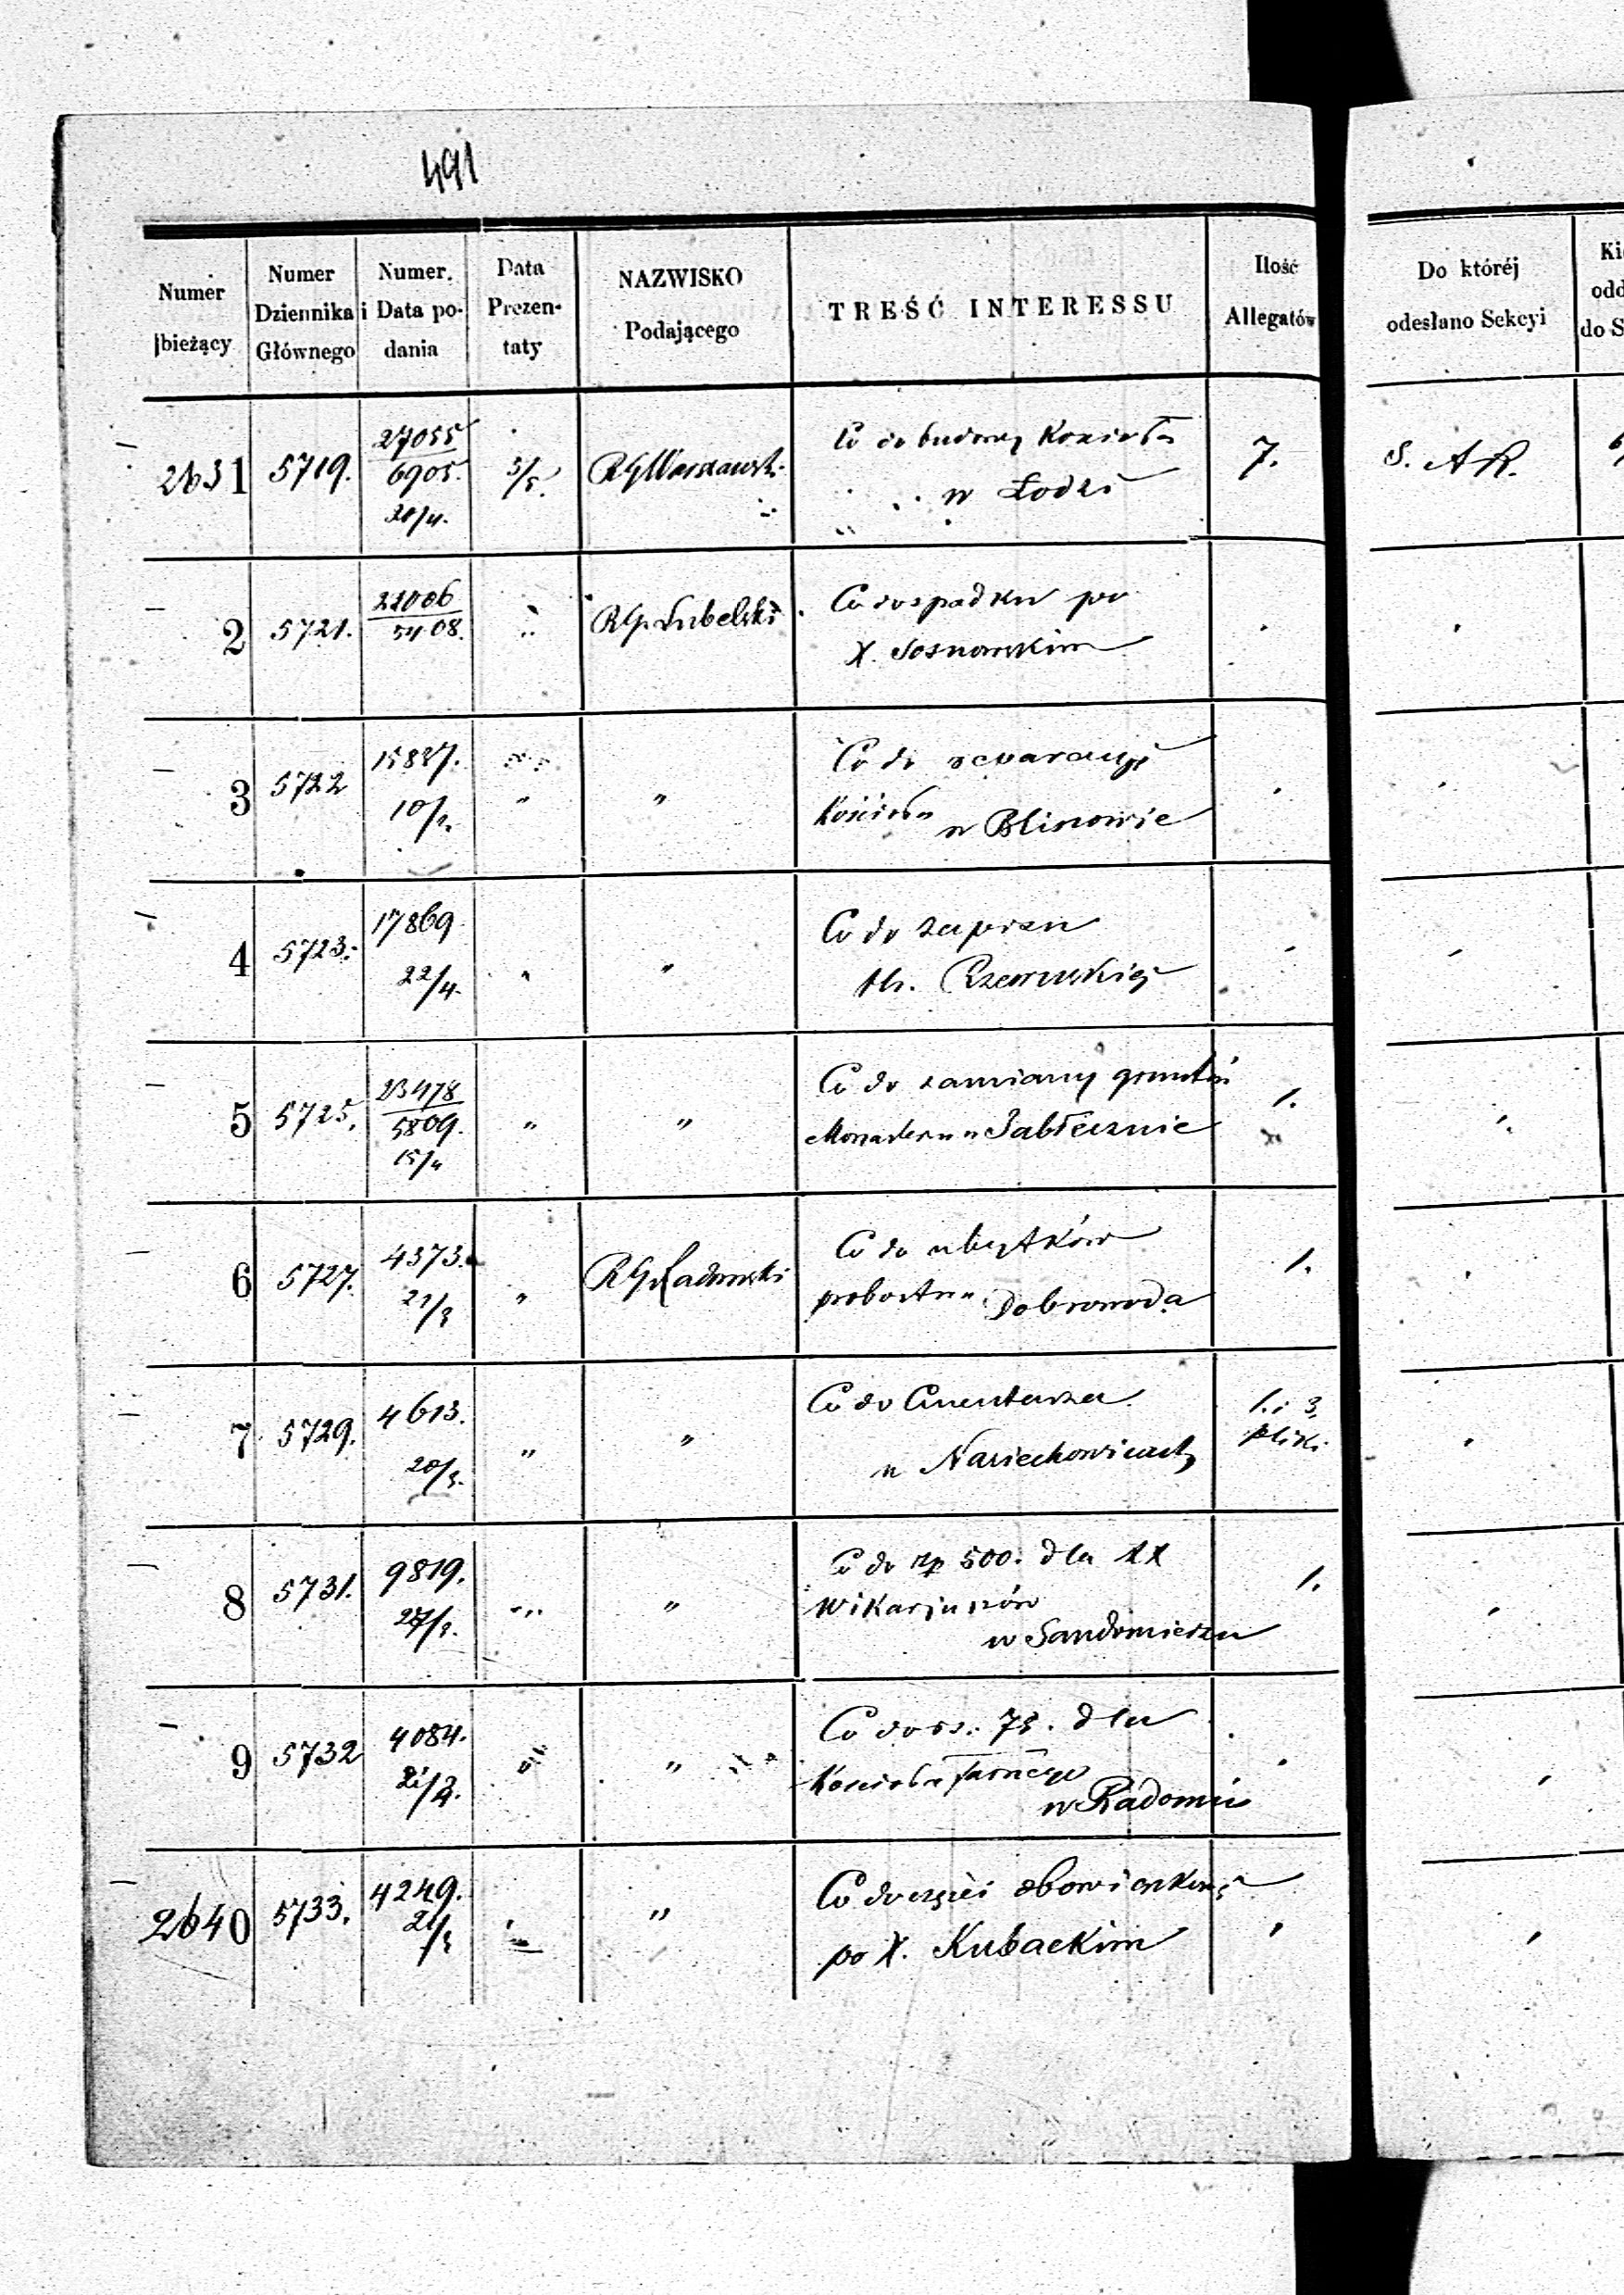 491
Numer bieżący | Numer Dziennika Głównego | Numer i Data podania | Data Prezentaty | NAZWISKO Podającego | TREŚĆ INTERESSU | Ilość Allegatów | Do któréj odesłano Sekcyi
2631 | 5719. | 27055 / 6905. 20/4. | 5/5. | RG Warszawski | Co do budowy Kościoła w Łodzi | 7. | S. AR.
2 | 5721. | 22006 / 5408. | " | RG. Lubelski | Co do spadku po X. Sosnowskim
3 | 5722 | 15887. 10/4. | " | " | Co do reparacyi Kościoła w Blinowie
4 | 5723. | 17869 22/4. | " | " | Co do zapisu Hr. Rzewuskiej
5 | 5725. | 23478 / 5809. 15/4 | " | " | Co do zamiany gruntów Monasteru w Jabłecznie | 1.
6 | 5727. | 4373. 21/3 | " | RG Radomski | Co do ubytków probostwa Dobrowoda | 1.
7 | 5729. | 4613. 20/3. | " | " | Co do Cmentarza w Nasiechowicach | 1. i 3. pliki
8 | 5731. | 9819. 27/3. | " | " | Co do zp 500. dla XX Wikarjuszów w Sandomierzu | 1.
9 | 5732 | 4084. | " | " | Co do rs. 75. dla Kościoła farnego w Radomiu
2640 | 5733. | 4249. 21/3 | " | " | Co do części obowiązkowej po X. Kubackim